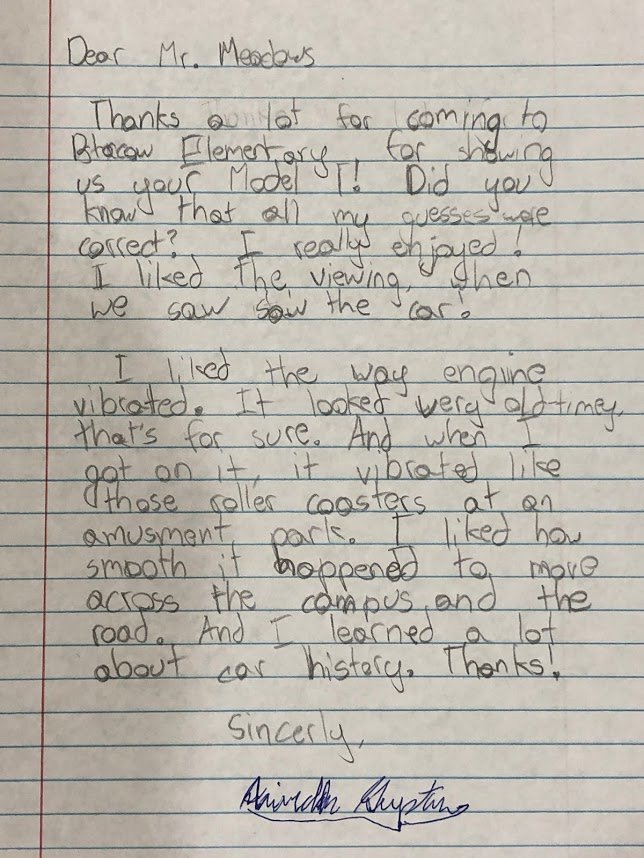 Dear Mr. Meadows
Thanks a lot for coming to
Elementary, for showing
us your Model T! Did you
know that all my guesses were
correct? I really enjoyed!
I liked the viewing, when
we saw saw the car!
I liked the way engine
vibrated. It looked very old-timey,
that's for sure. And when I
got on it, it vibrated like
those roller coasters at an
amusment park. I liked how
smooth it happened to move
across the campus and the
road. And I learned a lot
about car history. Thanks!
Sincerly,